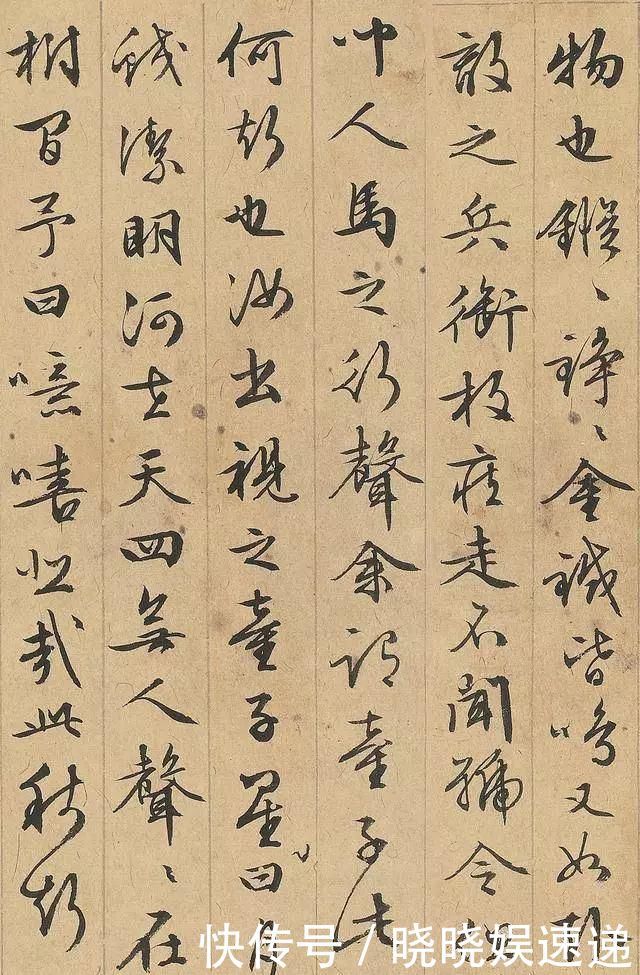 物也鏦〻錚〻金鐵皆鳴又如赴
敵之兵銜枚疾走不聞號令但
聞人馬之行聲余謂童子此
何聲也汝出視之童子星曰月
皎潔明河在天四無人聲〻在
樹間予曰噫嘻悲哉此秋聲
快传号 / 晓晓娱速递